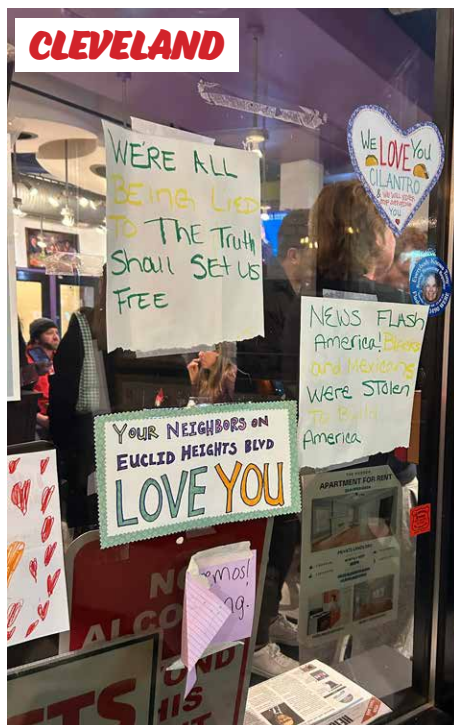 CLEVELAND
WE'RE ALL
BEING LIED
TO THE TRuth
Shall SET US
FREE
WE
LOVE YOU
CILANTRO
& WE WILL
YOU
NEWS FLASH
America! Blacks
and Mexicans
WERE STOLEN
To Build
America
YOUR NEIGHBORS ON
EUCLID HEIGHTS BLVD
LOVE YOU
APARTMENT FOR RENT
NO
ALCO
emos!
ng.
OND
HIS
NT
TS